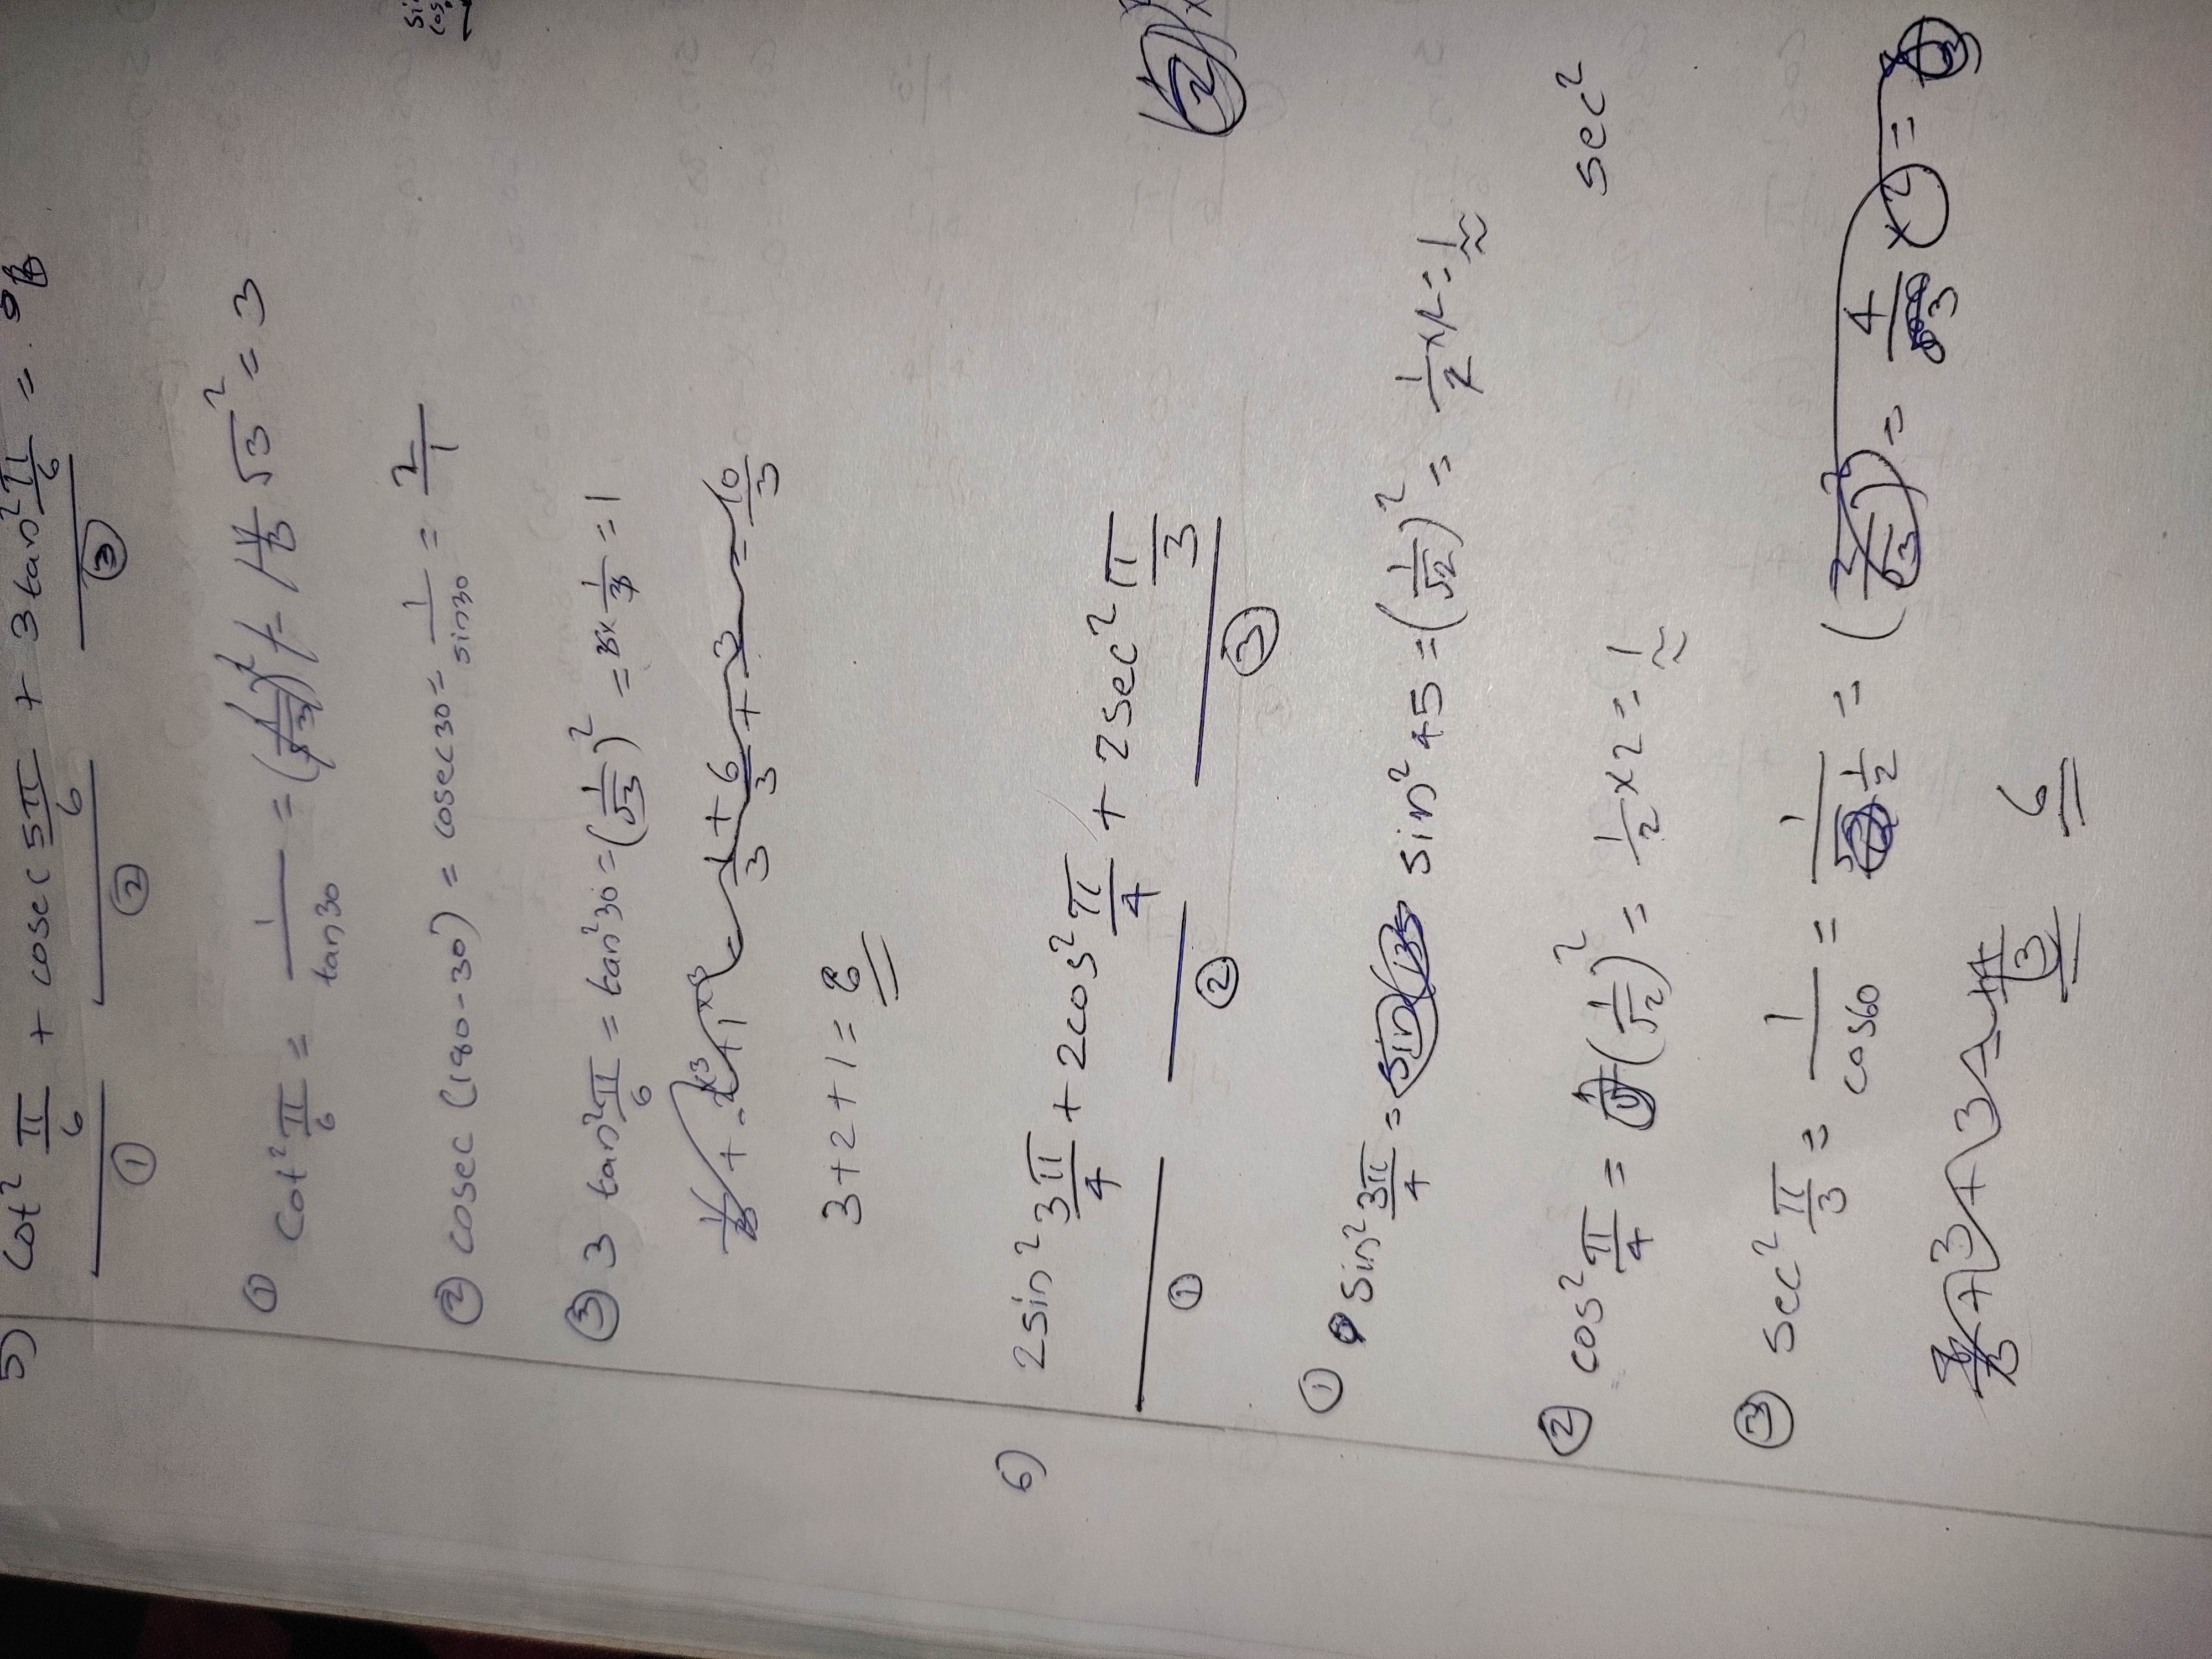 5) cot² π/6 + cosec 5π/6 + 3 tan² π/6 =
① ② ③
① cot² π/6 = 1/tan30 = √3² = 3
② cosec (180-30) = cosec30 = 1/sin30 = 2/1
③ 3 tan² π/6 = tan²30 = (1/√3)² = 3x 1/3 = 1
1/3 + 2^x3 + 1^x3 = 1+6/3 + 3 = 10/3
3+2+1 = 6
6) 2sin² 3π/4 + 2cos² π/4 + 2sec² π/3
① ② ③
① sin² 3π/4 = sin 135 sin² 45 = (1/√2)² = 1/2 x 2 = 1
② cos² π/4 = (1/√2)² = 1/2 x 2 = 1
sec²
③ sec² π/3 = 1/cos60 = 1/ 1/2 = (2/√3)² = 4/3 x 2 = 8/3
8/3 + 3 + 3 = 14/3 6